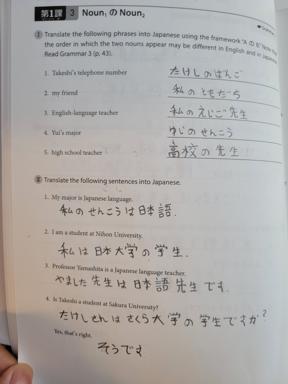 第1課 3 Noun₁ の Noun₂
I Translate the following phrases into Japanese using the framework "A の B."
the order in which the two nouns appear may be different in English and in Japanese.
Read Grammar 3 (p. 43).
1. Takeshi's telephone number たけしのばんご
2. my friend 私のともだち
3. English-language teacher 私のえいご先生
4. Yui's major ゆいのせんこう
5. high school teacher 高校の先生
II Translate the following sentences into Japanese.
1. My major is Japanese language.
私のせんこうは日本語.
2. I am a student at Nihon University.
私は日本大学の学生.
3. Professor Yamashita is a Japanese language teacher.
やました先生は日本語先生です.
4. Is Takeshi a student at Sakura University?
たけしさんはさくら大学の学生ですか?
Yes, that's right.
そうです